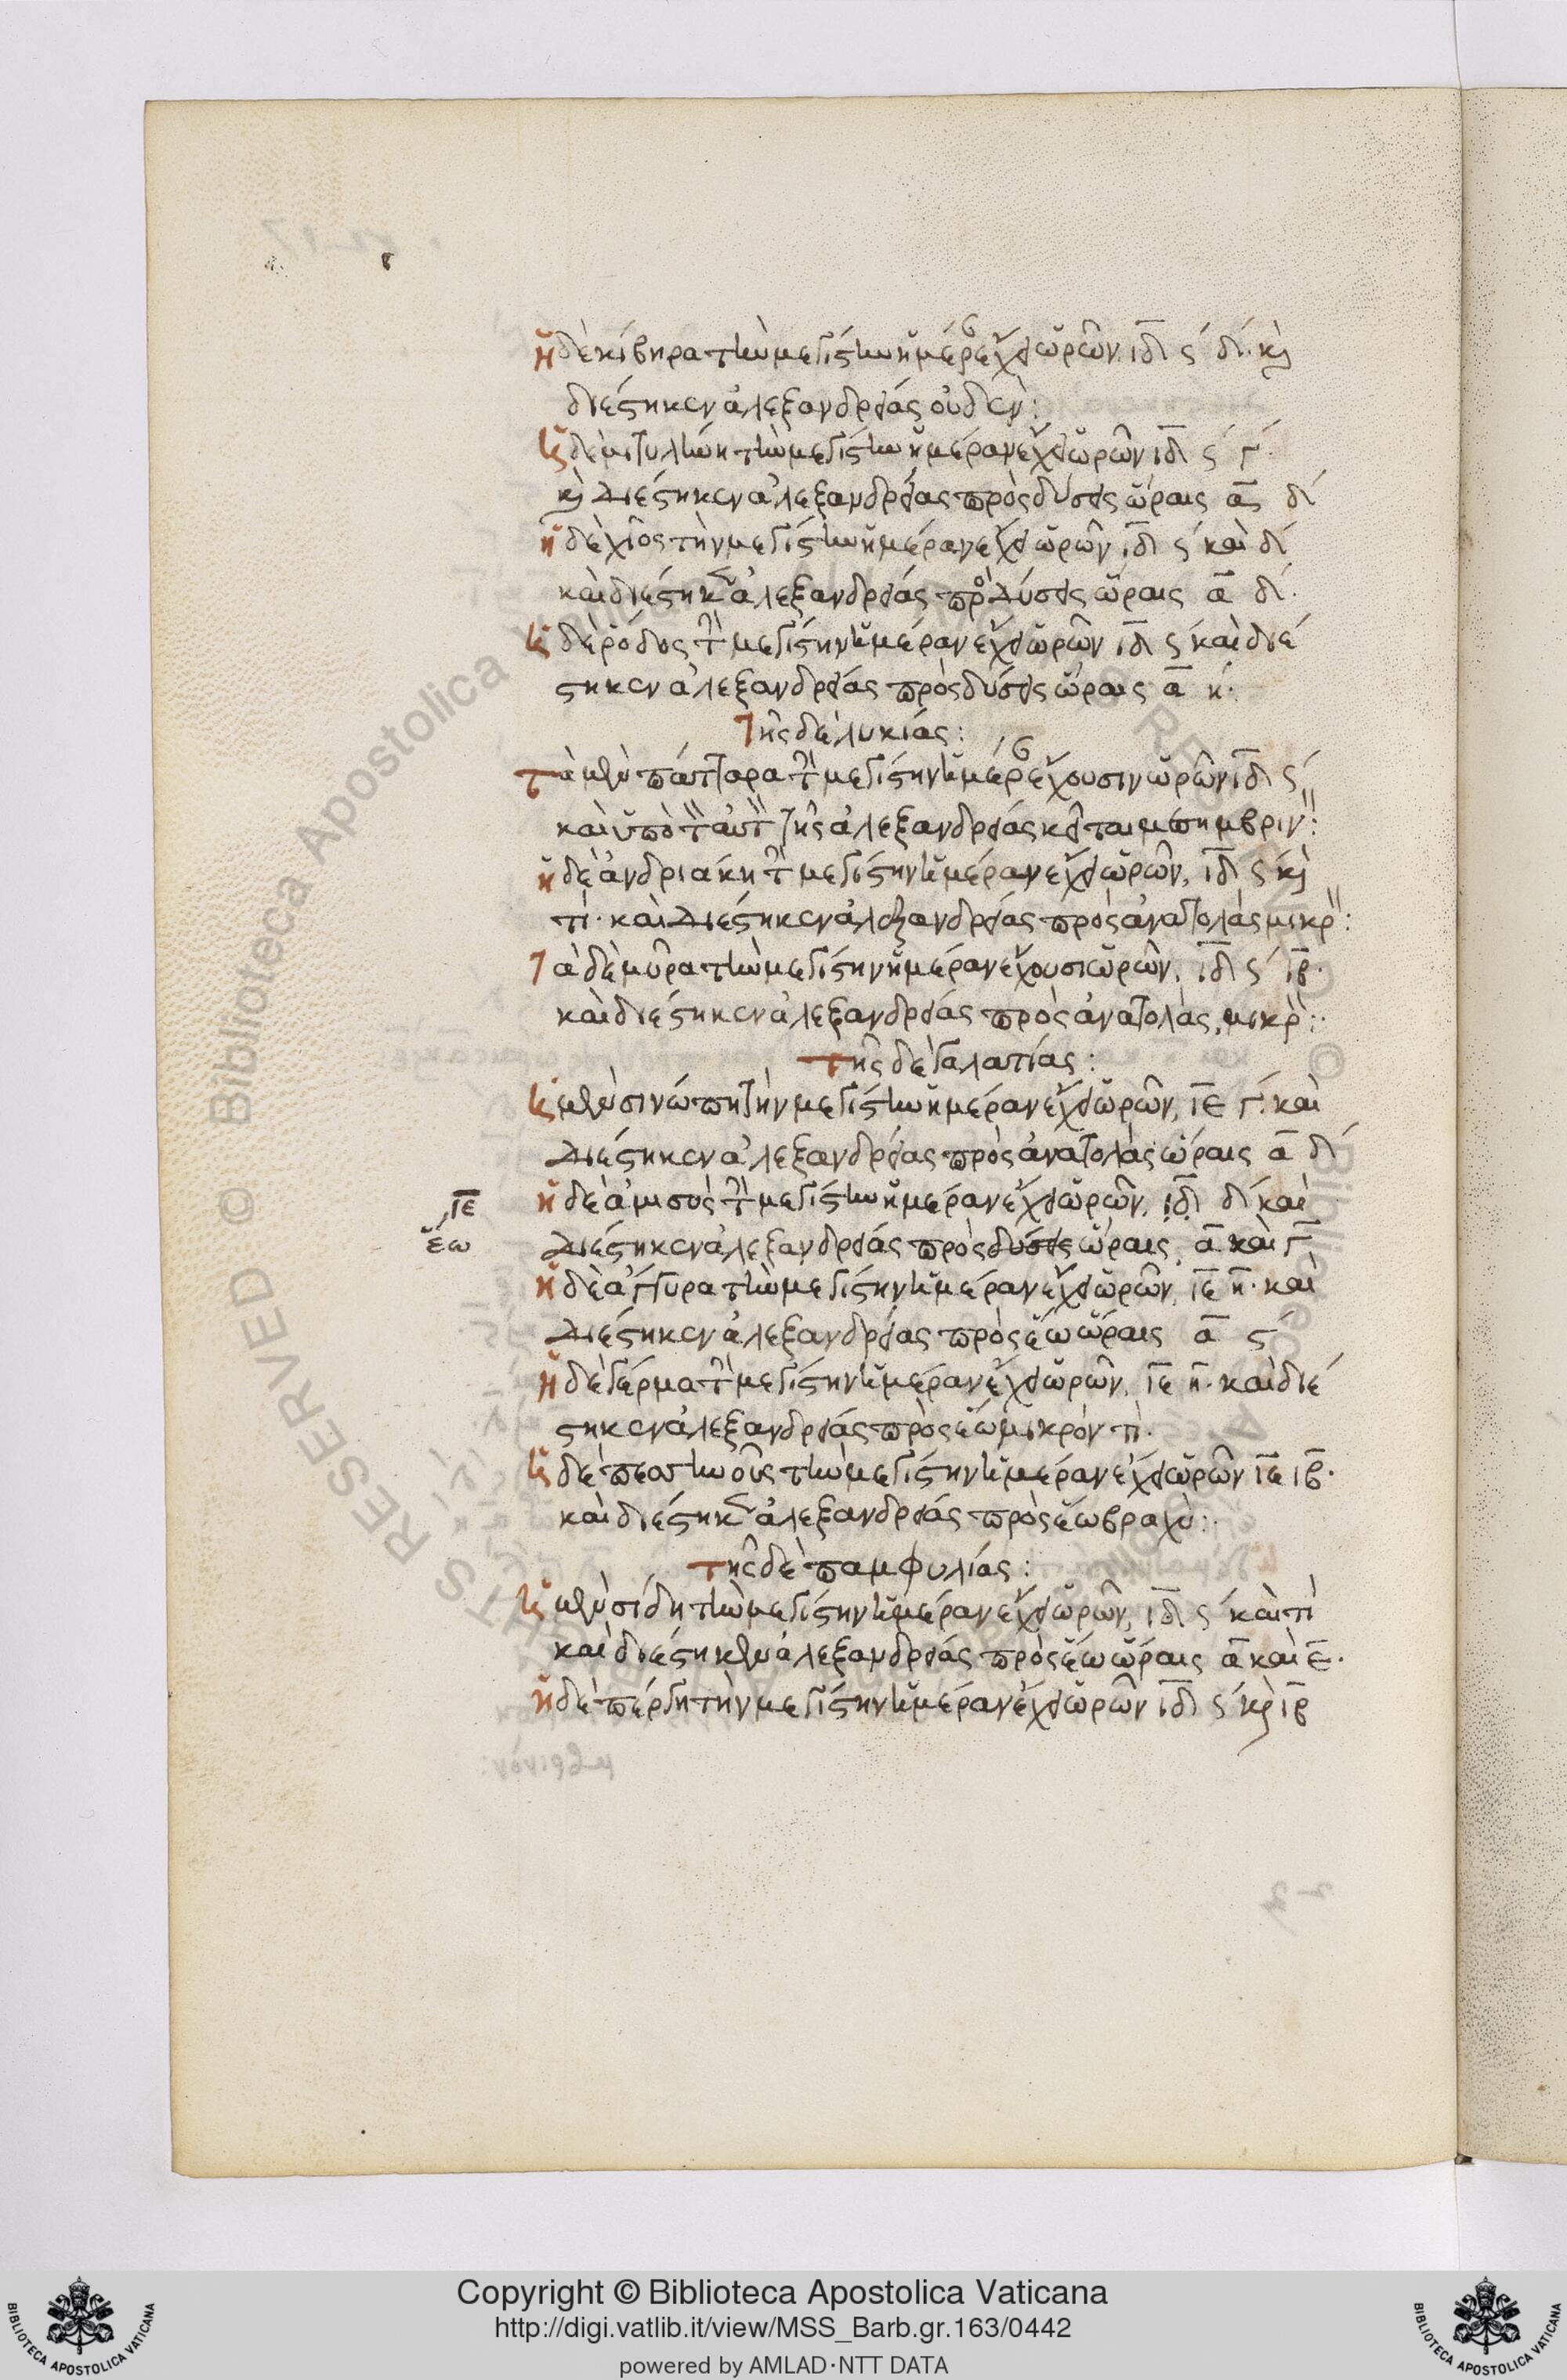 ἡ δὲ κίβηρα τὴν μεγίστην ἡμέραν ἔχει ὡρῶν ιδ ς΄ δ΄ κ(αὶ)
διέστηκεν ἀλεξανδρείας οὐδέν:
ἡ δὲ μιτυλήνη τὴν μεγίστην ἡμέραν ἔχει ὡρῶν ιδ ς΄ γ΄
κ(αὶ) διέστηκεν ἀλεξανδρείας πρὸς δύσεις ὥραις α δ΄
ἡ δὲ χῖος τὴν μεγίστην ἡμέραν ἔχει ὡρῶν ιδ ς΄ καὶ δ΄
καὶ διέστηκεν ἀλεξανδρείας πρὸς δύσεις ὥραις α δ΄.
ἡ δὲ ρόδος τὴν μεγίστην ἡμέραν ἔχει ὡρῶν ιδ ς΄ καὶ διέ
στηκεν ἀλεξανδρείας πρὸς δύσεις ὥραις α η΄.
Τῆς δὲ λυκίας:
τὰ μὲν πάταρα τὴν μεγίστην ἡμέραν ἔχουσιν ὡρῶν ιδ ς΄
καὶ ὑπὸ τὸν αὐτὸν τῆς ἀλεξανδρείας κεῖται μεσημβρινόν:
ἡ δὲ ἀνδριάκη τὴν μεγίστην ἡμέραν ἔχει ὡρῶν, ιδ ς΄ κ(αὶ)
π΄. καὶ διέστηκεν ἀλεξανδρείας πρὸς ἀνατολὰς μικρόν:
τὰ δὲ μύρα τὴν μεγίστην ἡμέραν ἔχουσι ὡρῶν, ιδ ς΄ ιβ.
καὶ διέστηκεν ἀλεξανδρείας πρὸς ἀνατολὰς, μικρὸν:
τῆς δὲ γαλατίας:
ἡ μὲν σινώπη τὴν μεγίστην ἡμέραν ἔχει ὡρῶν, ιε γ΄. καὶ
διέστηκεν ἀλεξανδρείας πρὸς ἀνατολὰς ὥραις α δ΄
ιε
ἡ δὲ ἀμισὸς τὴν μεγίστην ἡμέραν ἔχει ὡρῶν, ιδ δ΄ καὶ
ἕω
διέστηκεν ἀλεξανδρείας πρὸς δύσεις ὥραις α καὶ γ
ἡ δὲ ἄγκυρα τὴν μεγίστην ἡμέραν ἔχει ὡρῶν, ιε η. καὶ
διέστηκεν ἀλεξανδρείας πρὸς ἕω ὥραις α ς΄
ἡ δὲ γέρμα τὴν μεγίστην ἡμέραν ἔχει ὡρῶν, ιε η. καὶ διέ
στηκεν ἀλεξανδρείας πρὸς ἕω μικρόν τι.
ἡ δὲ πεσινοῦς τὴν μεγίστην ἡμέραν ἔχει ὡρῶν ιε ιβ.
καὶ διέστηκεν ἀλεξανδρείας πρὸς ἕω βραχύ:
τῆς δὲ παμφυλίας:
ἡ μὲν σίδη τὴν μεγίστην ἡμέραν ἔχει ὡρῶν, ιδ ς΄ καὶ π΄
καὶ διέστηκεν ἀλεξανδρείας πρὸς ἕω ὥραις α καὶ ε.
ἡ δὲ πέργη τὴν μεγίστην ἡμέραν ἔχει ὡρῶν ιδ ς΄ κ(αὶ) ιβ
Copyright © Biblioteca Apostolica Vaticana
http://digi.vatlib.it/view/MSS_Barb.gr.163/0442
powered by AMLAD·NTT DATA